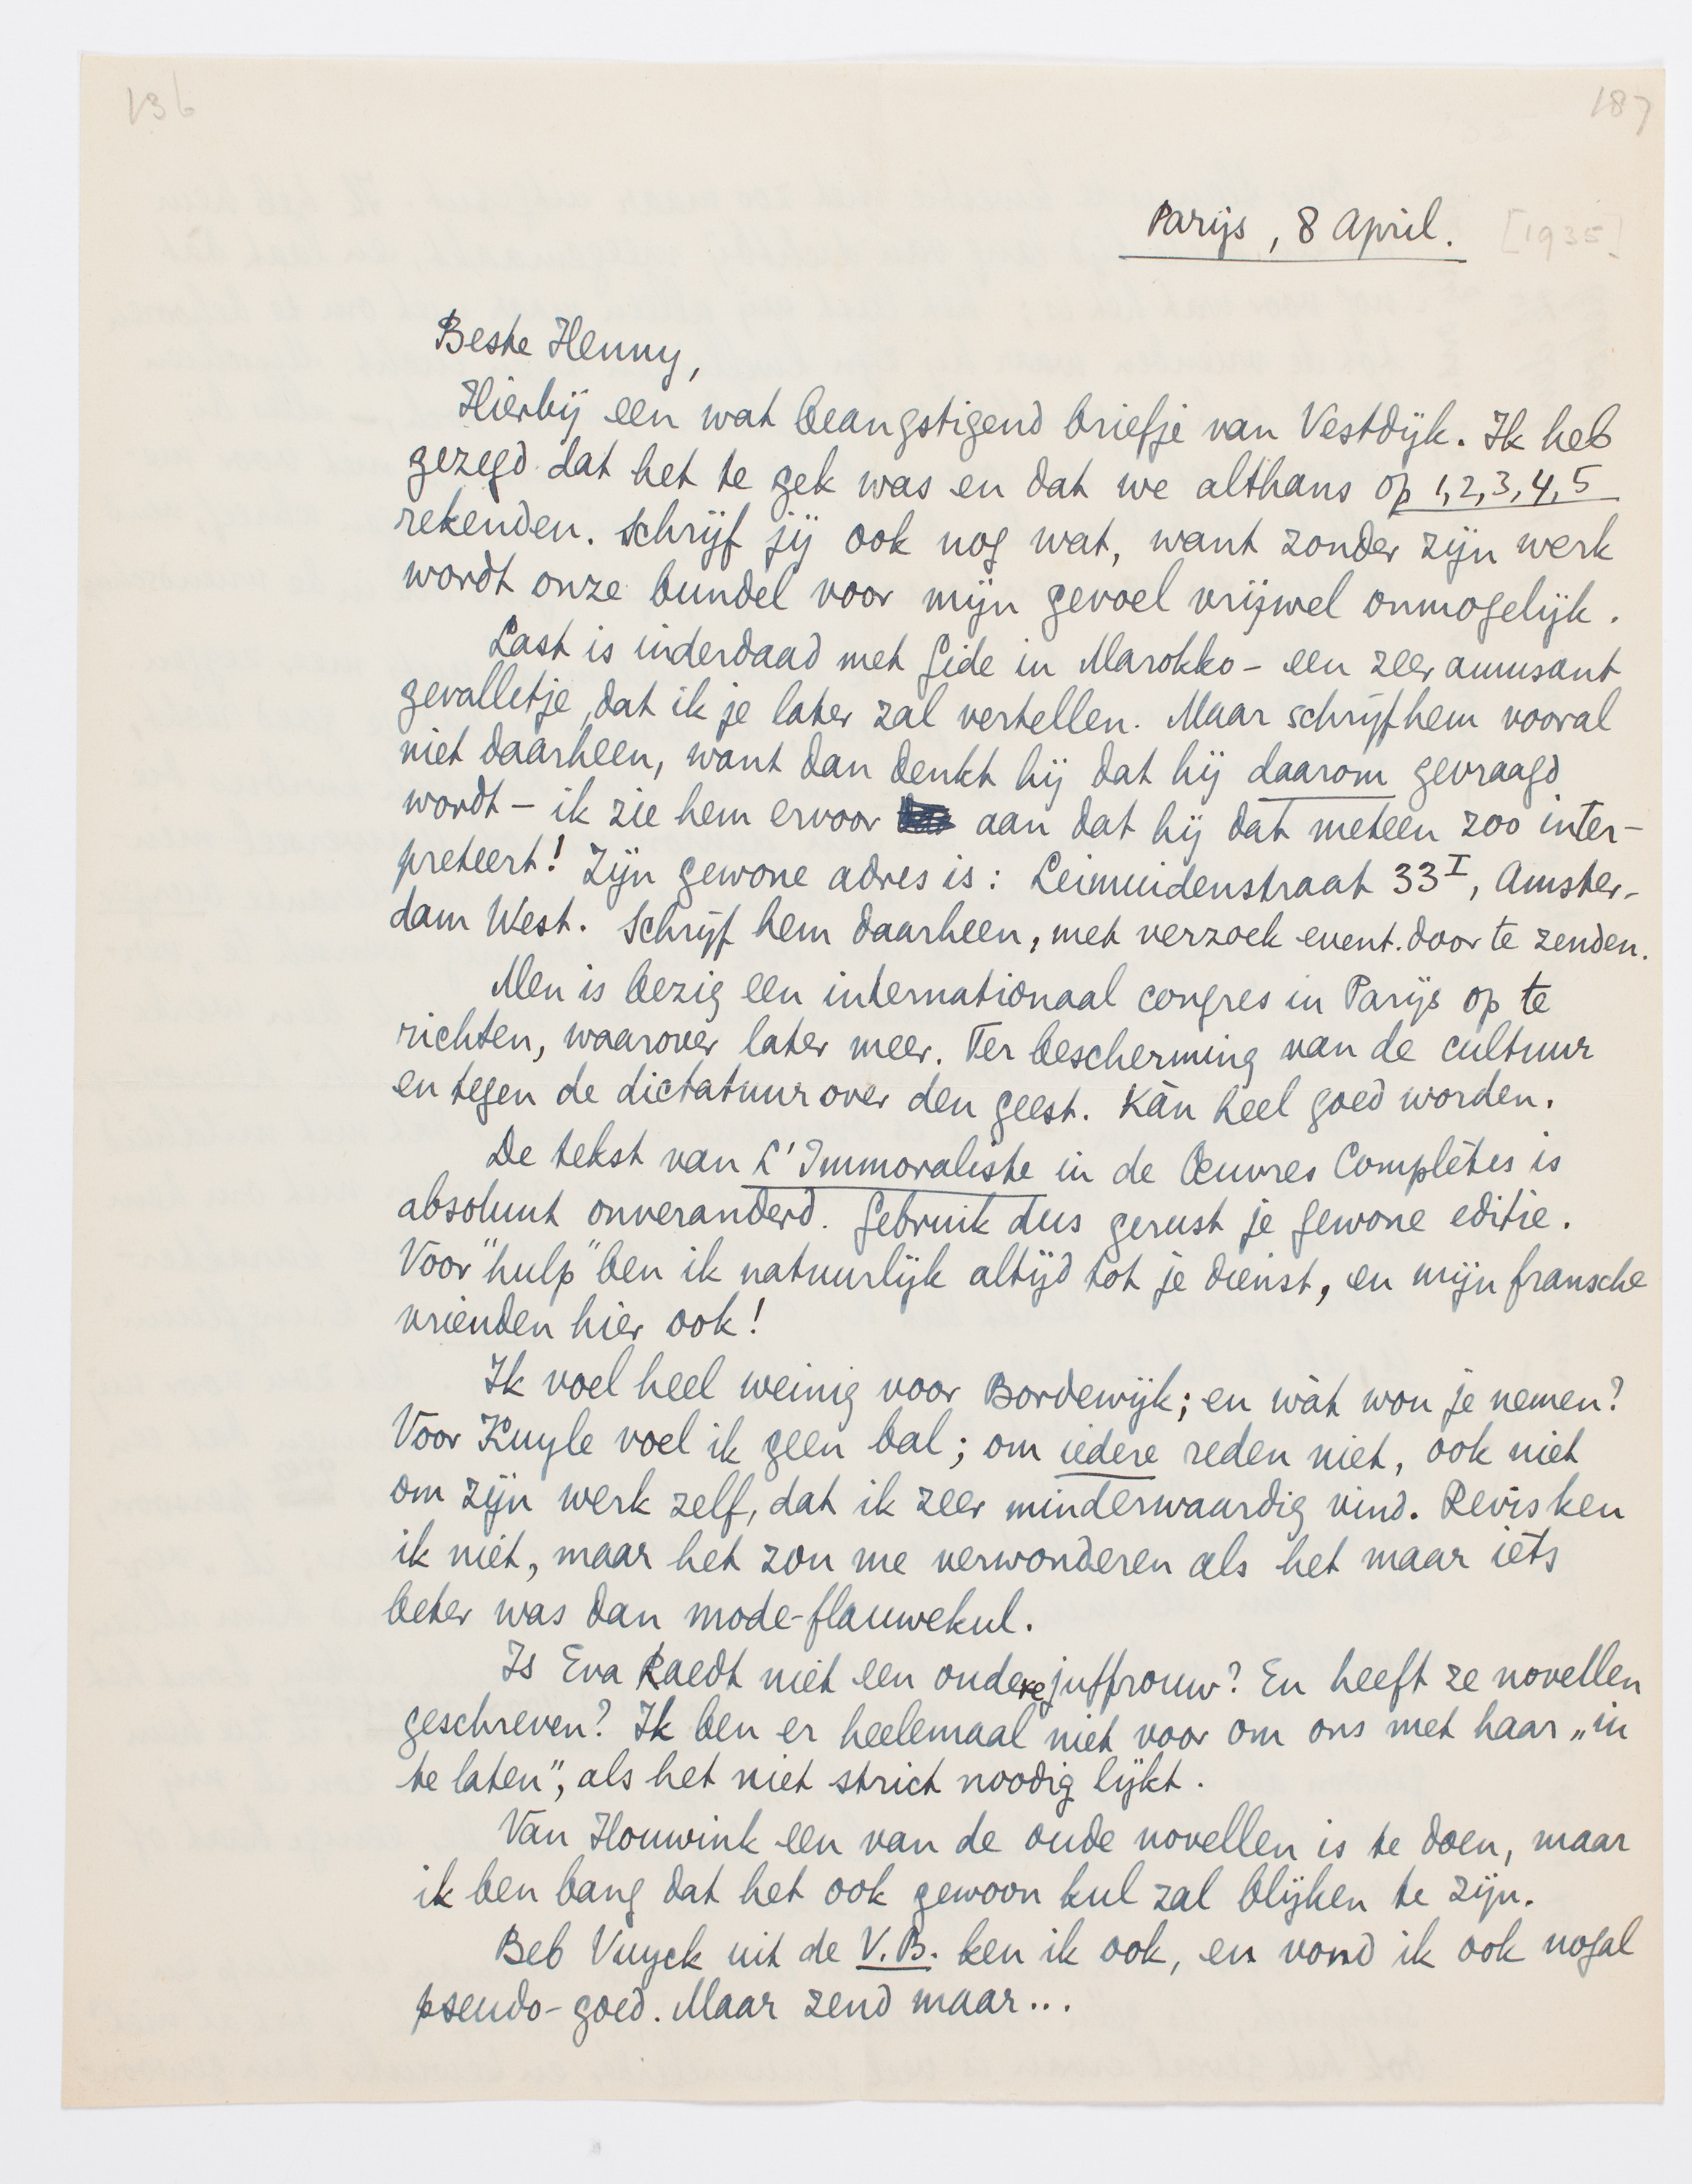 136
187
Parijs, 8 April. [1935]
Beste Henny,
Hierbij een wat beangstigend briefje van Vestdijk. Ik heb
gezegd dat het te gek was en dat we althans op 1, 2, 3, 4, 5
rekenden. Schrijf jij ook nog wat, want zonder zijn werk
wordt onze bundel voor mijn gevoel vrijwel onmogelijk.
Last is inderdaad met Gide in Marokko – een zeer amusant
gevalletje, dat ik je later zal vertellen. Maar schrijf hem vooral
niet daarheen, want dan denkt hij dat hij daarom gevraagd
wordt – ik zie hem ervoor aan dat hij dat meteen zoo inter-
preteert! Zijn gewone adres is: Leimuidenstraat 33 I, Amster-
dam West. Schrijf hem daarheen, met verzoek event. door te zenden.
Men is bezig een internationaal congres in Parijs op te
richten, waarover later meer. Ter bescherming van de cultuur
en tegen de dictatuur over den geest. Kàn heel goed worden.
De tekst van L'Immoraliste in de Œuvres Complètes is
absoluut onveranderd. Gebruik dus gerust je gewone editie.
Voor "hulp" ben ik natuurlijk altijd tot je dienst, en mijn fransche
vrienden hier ook!
Ik voel heel weinig voor Bordewijk; en wàt wou je nemen?
Voor Kuyle voel ik geen bal; om iedere reden niet, ook niet
om zijn werk zelf, dat ik zeer minderwaardig vind. Revis ken
ik niet, maar het zou me verwonderen als het maar iets
beter was dan mode-flauwekul.
Is Eva Raedt niet een oudere juffrouw? En heeft ze novellen
geschreven? Ik ben er heelemaal niet voor om ons met haar „in
te laten", als het niet strict noodig lijkt.
Van Houwink een van de oude novellen is te doen, maar
ik ben bang dat het ook gewoon kul zal blijken te zijn.
Beb Vuyck uit de V.B. ken ik ook, en vond ik ook nogal
pseudo-goed. Maar zend maar...